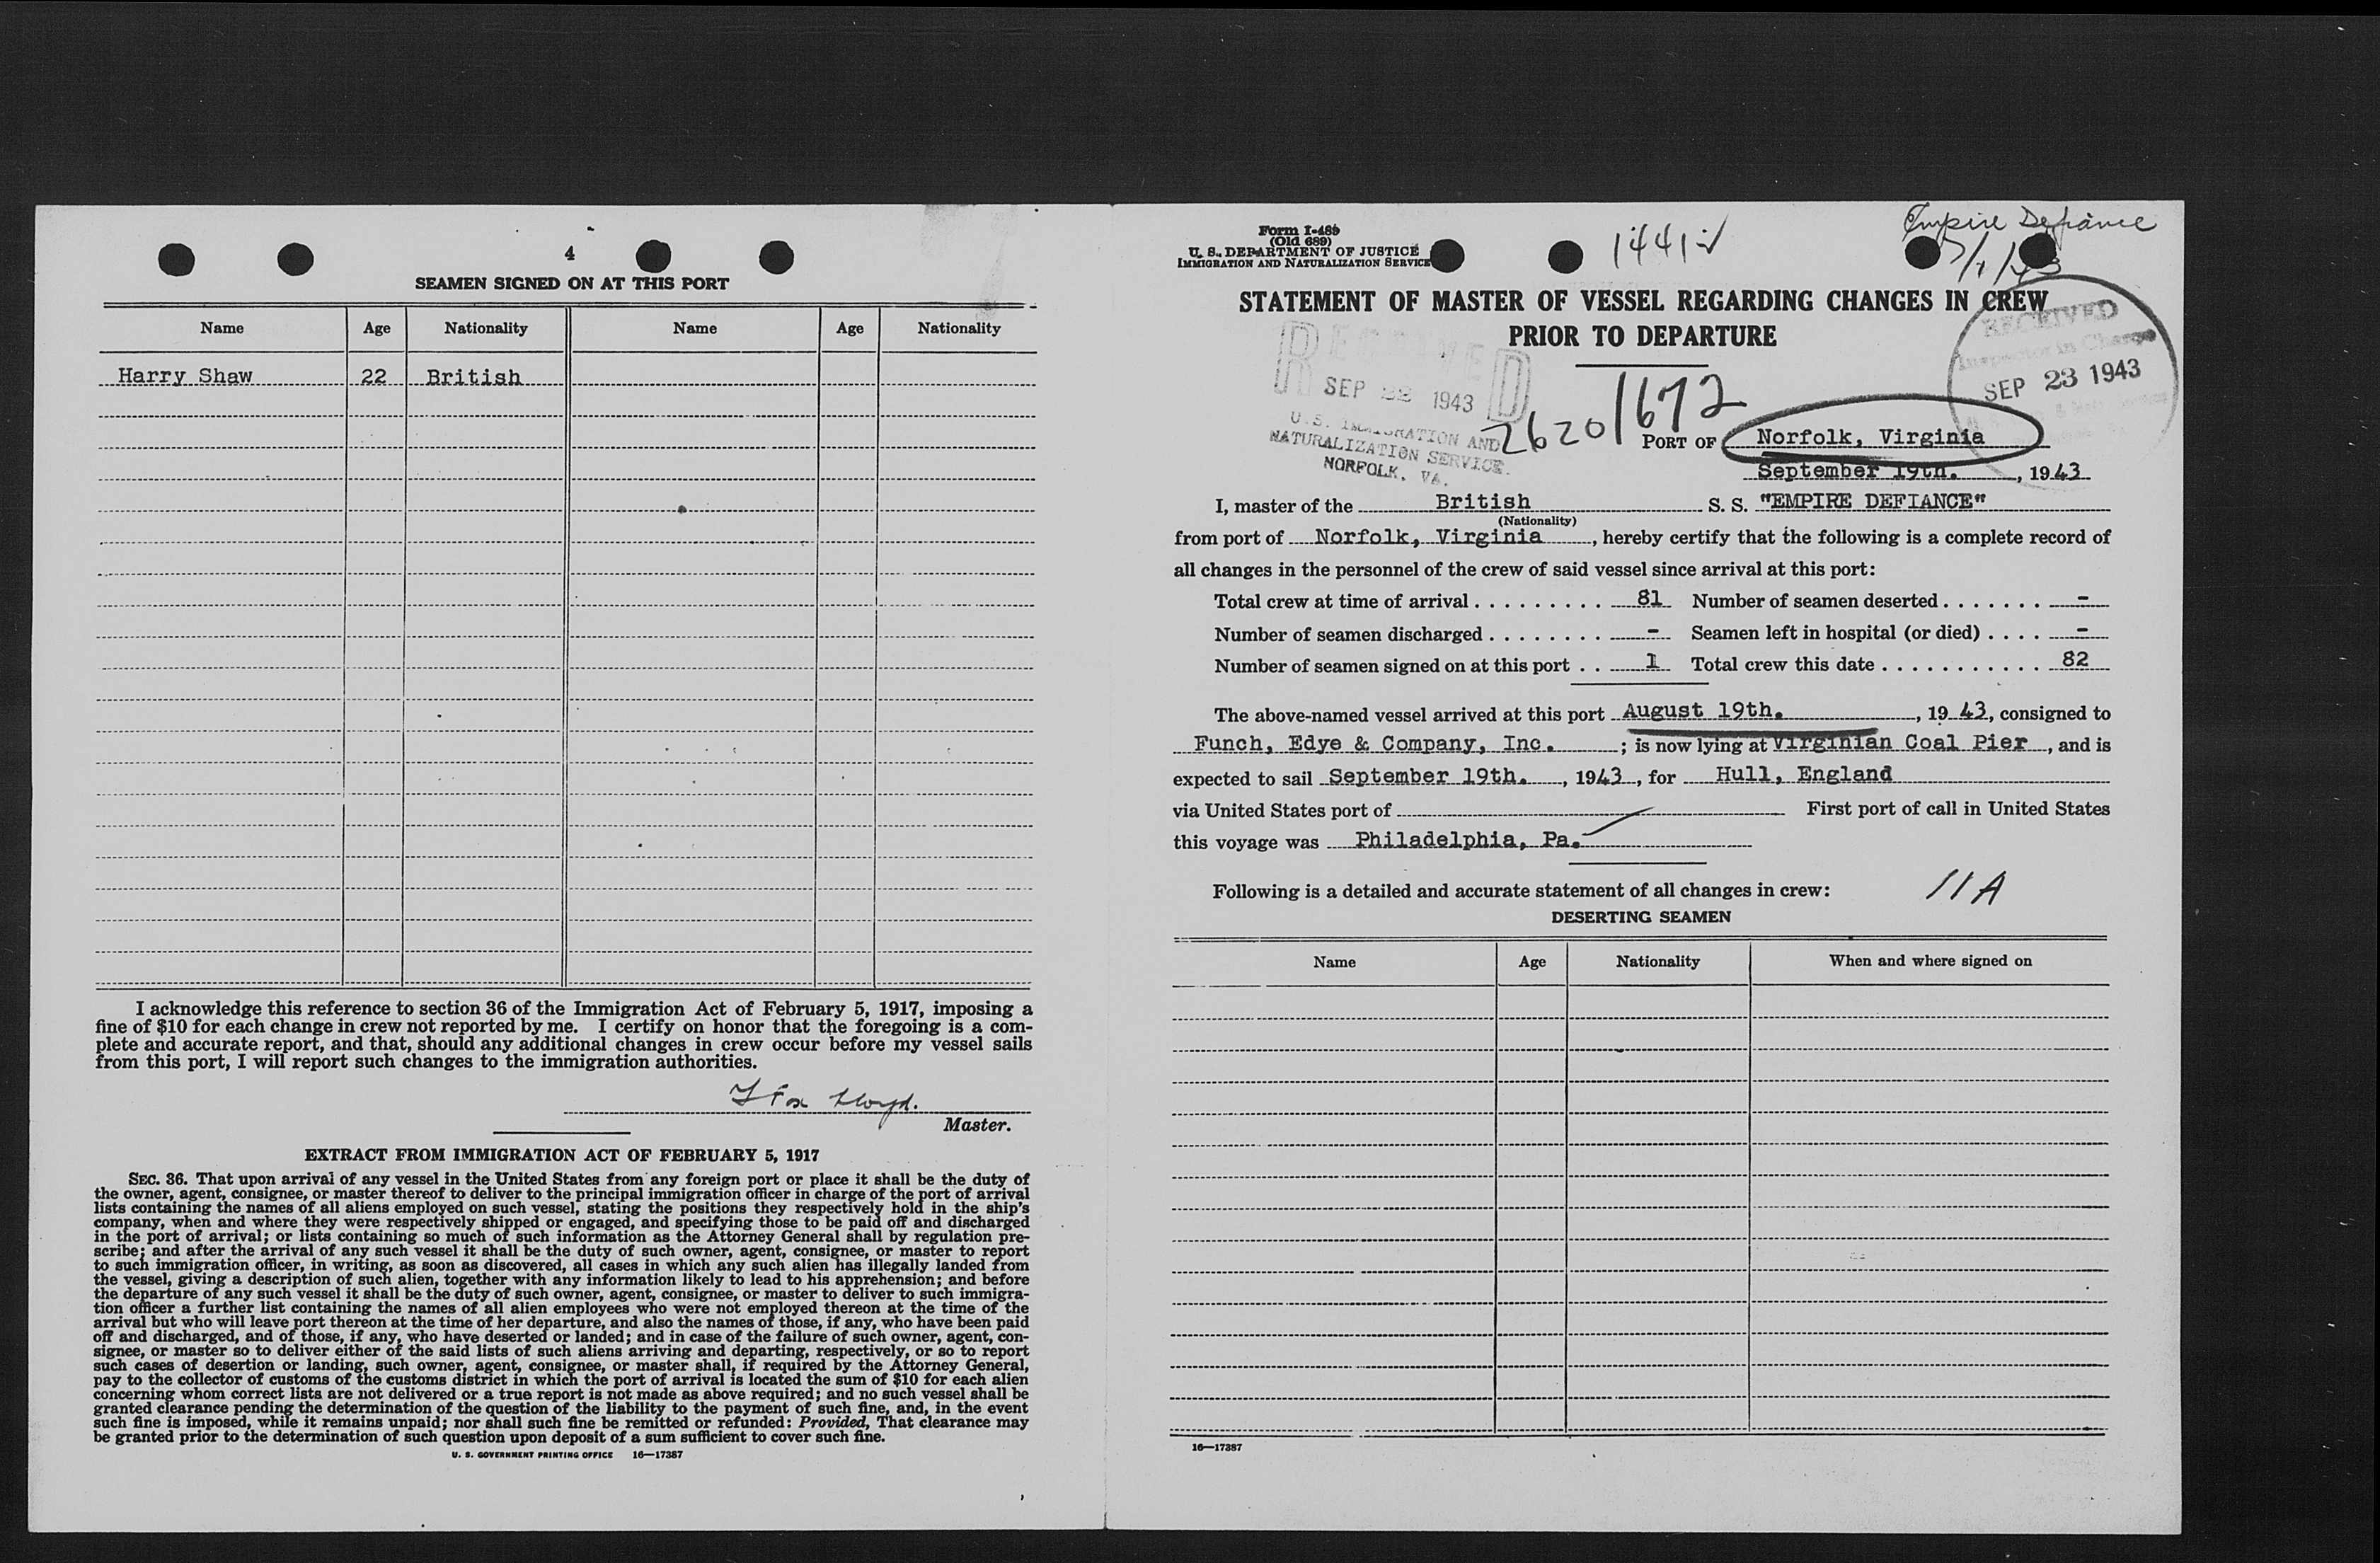 4
SEAMEN SIGNED ON AT THIS PORT
Name Age Nationality Name Age Nationality
Harry Shaw 22 British
I acknowledge this reference to section 36 of the Immigration Act of February 5, 1917, imposing a
fine of $10 for each change in crew not reported by me. I certify on honor that the foregoing is a com-
plete and accurate report, and that, should any additional changes in crew occur before my vessel sails
from this port, I will report such changes to the immigration authorities.
Lloyd.
Master.
EXTRACT FROM IMMIGRATION ACT OF FEBRUARY 5, 1917
SEC. 36. That upon arrival of any vessel in the United States from any foreign port or place it shall be the duty of
the owner, agent, consignee, or master thereof to deliver to the principal immigration officer in charge of the port of arrival
lists containing the names of all aliens employed on such vessel, stating the positions they respectively hold in the ship's
company, when and where they were respectively shipped or engaged, and specifying those to be paid off and discharged
in the port of arrival; or lists containing so much of such information as the Attorney General shall by regulation pre-
scribe; and after the arrival of any such vessel it shall be the duty of such owner, agent, consignee, or master to report
to such immigration officer, in writing, as soon as discovered, all cases in which any such alien has illegally landed from
the vessel, giving a description of such alien, together with any information likely to lead to his apprehension; and before
the departure of any such vessel it shall be the duty of such owner, agent, consignee, or master to deliver to such immigra-
tion officer a further list containing the names of all alien employees who were not employed thereon at the time of the
arrival but who will leave port thereon at the time of her departure, and also the names of those, if any, who have been paid
off and discharged, and of those, if any, who have deserted or landed; and in case of the failure of such owner, agent, con-
signee, or master so to deliver either of the said lists of such aliens arriving and departing, respectively, or so to report
such cases of desertion or landing, such owner, agent, consignee, or master shall, if required by the Attorney General,
pay to the collector of customs of the customs district in which the port of arrival is located the sum of $10 for each alien
concerning whom correct lists are not delivered or a true report is not made as above required; and no such vessel shall be
granted clearance pending the determination of the question of the liability to the payment of such fine, and, in the event
such fine is imposed, while it remains unpaid; nor shall such fine be remitted or refunded: Provided, That clearance may
be granted prior to the determination of such question upon deposit of a sum sufficient to cover such fine.
U. S. GOVERNMENT PRINTING OFFICE 16—17387
Form I-489
(Old 689)
U. S. DEPARTMENT OF JUSTICE
IMMIGRATION AND NATURALIZATION SERVICE
1441
Empire Defiance
STATEMENT OF MASTER OF VESSEL REGARDING CHANGES IN CREW
PRIOR TO DEPARTURE
RECEIVED
SEP 1943
U. S. IMMIGRATION AND
NATURALIZATION SERVICE.
NORFOLK, VA.
RECEIVED
Inspector in Charge
SEP 23 1943
2620 1672
PORT OF Norfolk, Virginia
September 19th. , 1943
I, master of the British S. S. "EMPIRE DEFIANCE"
(Nationality)
from port of Norfolk, Virginia , hereby certify that the following is a complete record of
all changes in the personnel of the crew of said vessel since arrival at this port:
Total crew at time of arrival . . . . . . . . . 81 Number of seamen deserted . . . . . . . -
Number of seamen discharged . . . . . . . . - Seamen left in hospital (or died) . . . . -
Number of seamen signed on at this port . . 1 Total crew this date . . . . . . . . . . . 82
The above-named vessel arrived at this port August 19th. , 19 43, consigned to
Funch, Edye & Company, Inc. ; is now lying at Virginian Coal Pier , and is
expected to sail September 19th. , 1943 , for Hull, England
via United States port of First port of call in United States
this voyage was Philadelphia, Pa.
Following is a detailed and accurate statement of all changes in crew: 11A
DESERTING SEAMEN
Name Age Nationality When and where signed on
16—17387